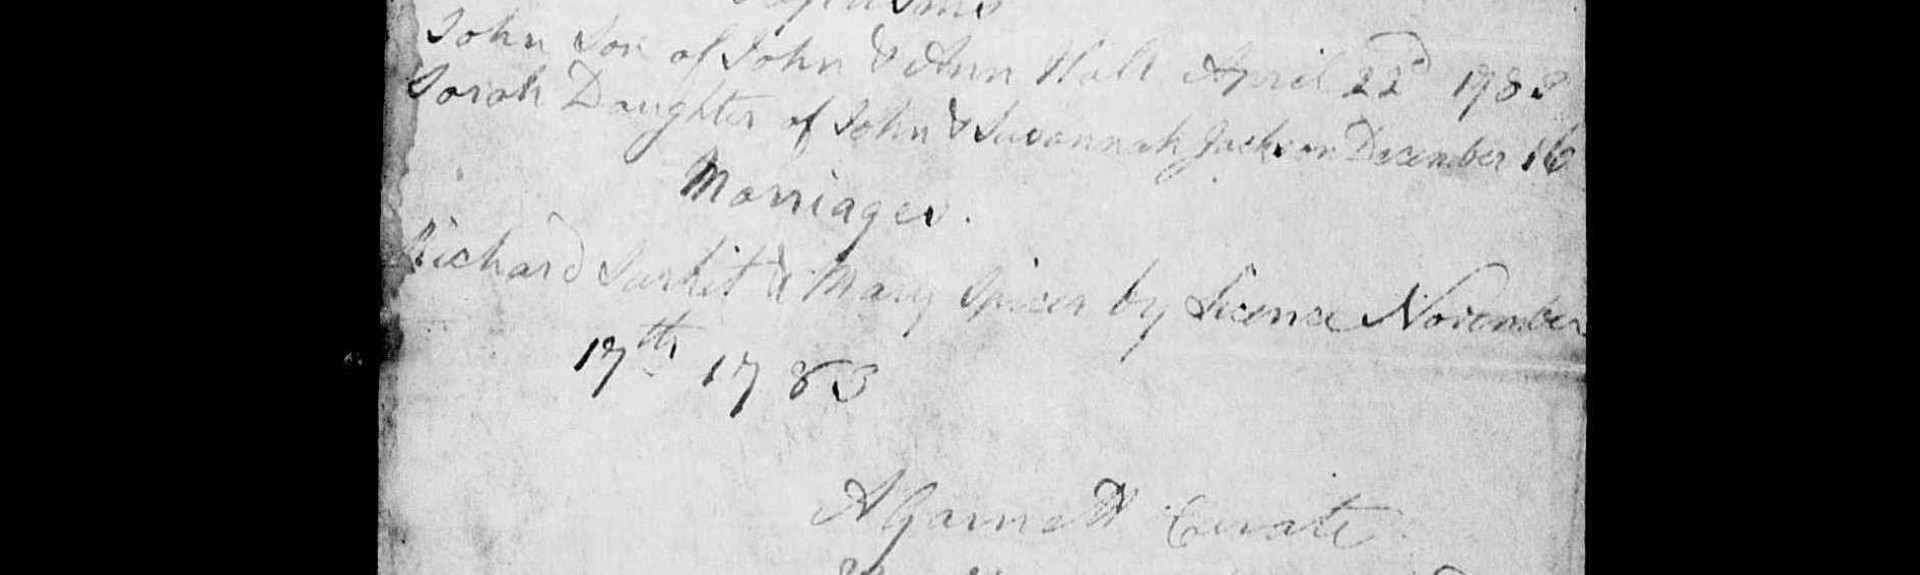 Baptisms
John Son of John & Ann Hall April 22d 1783
Sarah Daughter of John & Susannah Jackson December 16
Marriages.
Richard & Mary Spicer by Licence November
17th 1783
A Garnett Curate